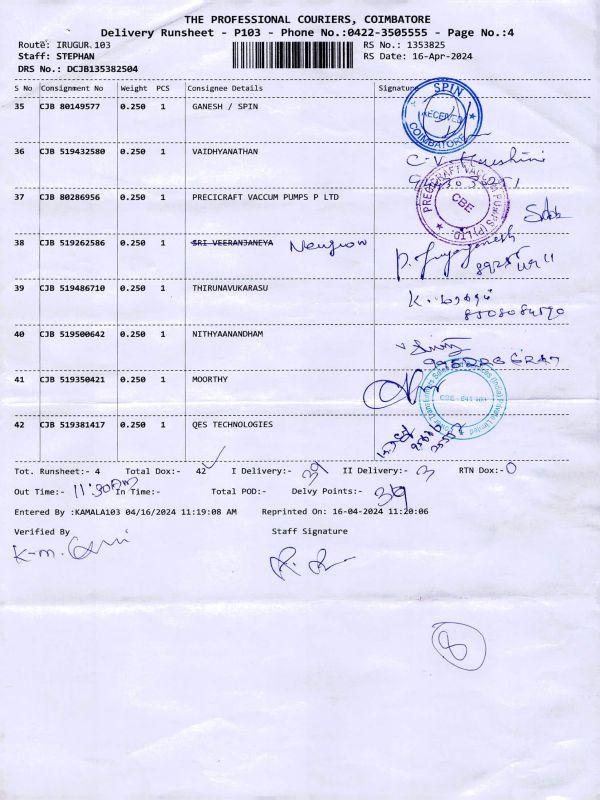 THE PROFESSIONAL COURIERS, COIMBATORE
Delivery Runsheet - P103 - Phone No.:0422-3505555 - Page No.:4
Route: IRUGUR.103 RS No.: 1353825
Staff: STEPHAN RS Date: 16-Apr-2024
DRS No.: DCJB135382504
S No Consignment No Weight PCS Consignee Details Signature
35 CJB 80149577 0.250 1 GANESH / SPIN
SPIN
RECEIVED
COIMBATORE
36 CJB 519432580 0.250 1 VAIDHYANATHAN
37 CJB 80286956 0.250 1 PRECICRAFT VACCUM PUMPS P LTD
PRECICRAFT VACCUM PUMPS (P) LTD.
CBE
38 CJB 519262586 0.250 1 SRI VEERANJANEYA
39 CJB 519486710 0.250 1 THIRUNAVUKARASU
40 CJB 519500642 0.250 1 NITHYAANANDHAM
41 CJB 519350421 0.250 1 MOORTHY
42 CJB 519381417 0.250 1 QES TECHNOLOGIES
Tot. Runsheet:- 4 Total Dox:- 42 I Delivery:- 39 II Delivery:- 3 RTN Dox:- 0
Out Time:- 11:30am In Time:- Total POD:- Delvy Points:- 39
Entered By :KAMALA103 04/16/2024 11:19:08 AM Reprinted On: 16-04-2024 11:20:06
Verified By Staff Signature
8